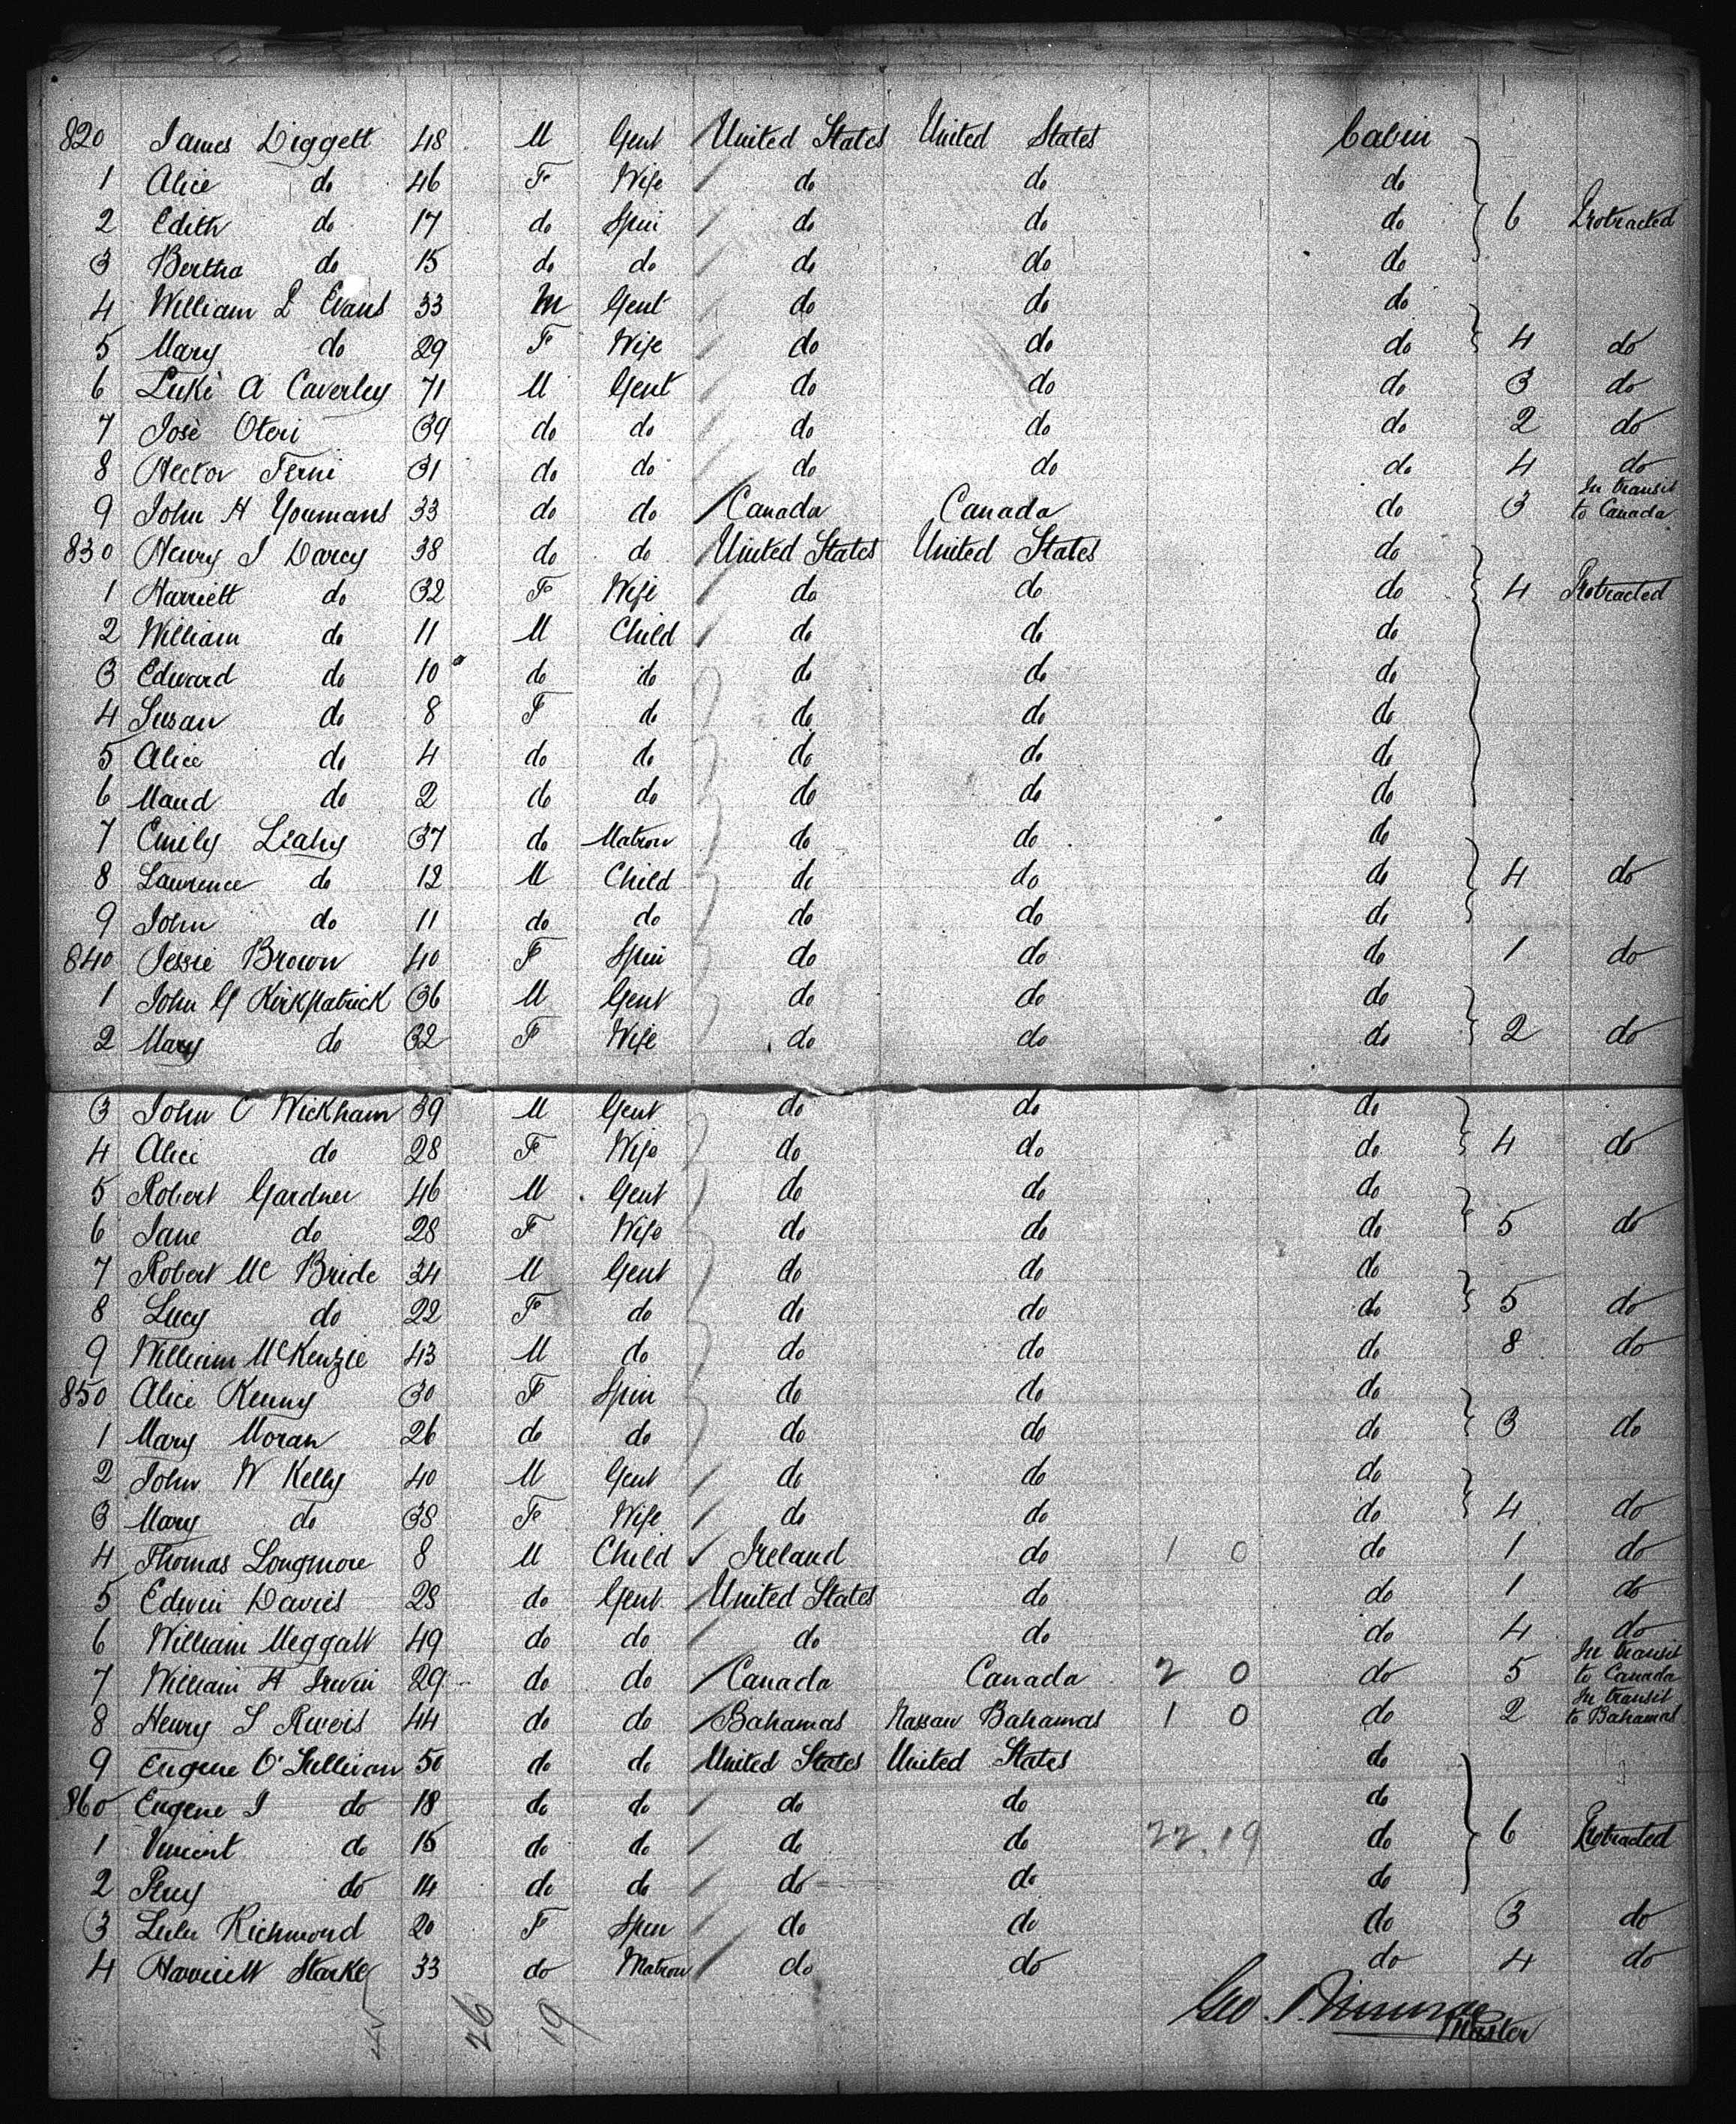 820 James Liggett 48 M Gent United States United States Cabin
1 Alice do 46 F Wife do do do
2 Edith do 17 do Spin do do do 6 Protracted
3 Bertha do 15 do do do do do
4 William L Evans 33 M Gent do do do
5 Mary do 29 F Wife do do do 4 do
6 Luke A Caverley 71 M Gent do do do 3 do
7 José Oteri 39 do do do do do 2 do
8 Hector Ferni 31 do do do do do 4 do
9 John H Youmans 33 do do Canada Canada do 3 In transit to Canada
830 Henry J Darcy 38 do do United States United States do
1 Harriett do 32 F Wife do do do 4 Protracted
2 William do 11 M Child do do do
3 Edward do 10 do do do do do
4 Susan do 8 F do do do do
5 Alice do 4 do do do do do
6 Maud do 2 do do do do do
7 Emily Leahy 37 do Matron do do do
8 Lawrence do 12 M Child do do do 4 do
9 John do 11 do do do do do
840 Jessie Brown 40 F Spin do do do 1 do
1 John G Kirkpatrick 36 M Gent do do do
2 Mary do 32 F Wife do do do 2 do
3 John C Wickham 39 M Gent do do do
4 Alice do 28 F Wife do do do 4 do
5 Robert Gardner 46 M Gent do do do
6 Jane do 28 F Wife do do do 5 do
7 Robert Mc Bride 34 M Gent do do do
8 Lucy do 22 F do do do do 5 do
9 William McKenzie 43 M do do do do 8 do
850 Alice Kenny 30 F Spin do do do
1 Mary Moran 26 do do do do do 3 do
2 John W Kelly 40 M Gent do do do
3 Mary do 38 F Wife do do do 4 do
4 Thomas Longmore 8 M Child Ireland do 1 0 do 1 do
5 Edwin Davies 28 do Gent United States do do 1 do
6 William Meggatt 49 do do do do do 4 do
7 William H Irwin 29 do do Canada Canada 2 0 do 5 In transit to Canada
8 Henry S Rivers 44 do do Bahamas Nassau Bahamas 1 0 do 2 In transit to Bahamas
9 Eugene O'Sullivan 50 do do United States United States do
860 Eugene J do 18 do do do do do
1 Vincent do 15 do do do do 22.19 do 6 Protracted
2 Percy do 14 do do do do do
3 Lulu Richmond 20 F Spin do do do 3 do
4 Harriett Starke 33 do Matron do do do 4 do
26 19
Geo.
Master